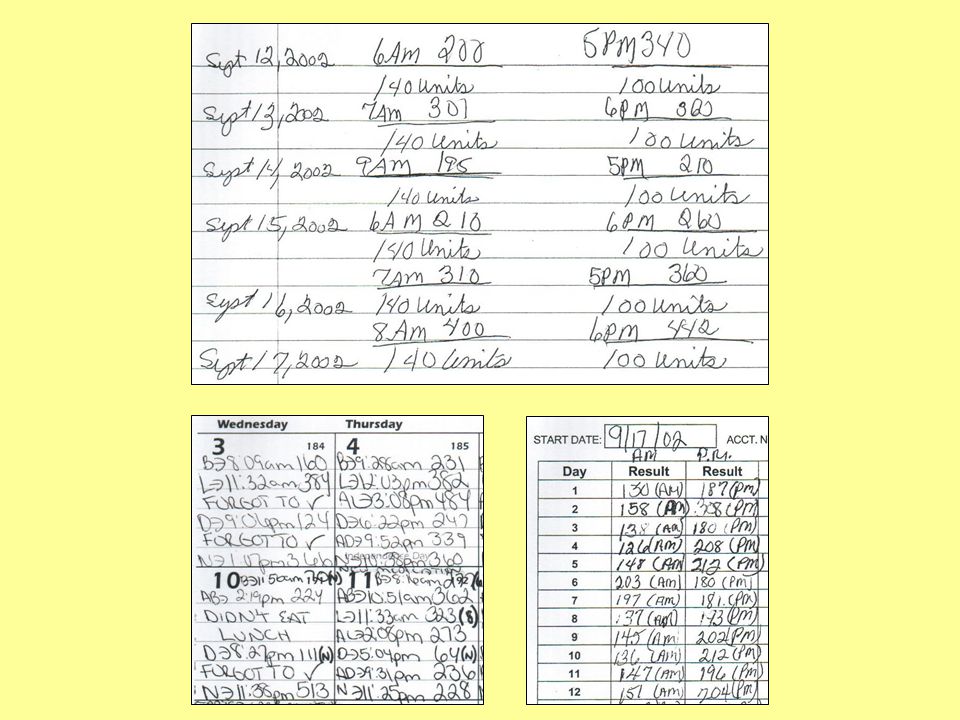 Sept 12, 2002 6AM 200 5PM 340
140 Units 100 Units
Sept 13, 2002 7AM 301 6PM 360
140 Units 100 Units
Sept 14, 2002 9AM 195 5PM 210
140 Units 100 Units
Sept 15, 2002 6AM 210 6PM 260
140 Units 100 Units
7AM 310 5PM 360
Sept 16, 2002 140 Units 100 Units
8AM 400 6PM 442
Sept 17, 2002 140 Units 100 Units
Wednesday Thursday
3 184 4 185
B→8:09am 160 B→9:28am 231
L→11:32am 384 L→12:03pm 382
FORGOT TO ✓ AL→3:08pm 484
D→9:06pm 124 D→6:22pm 247
FORGOT TO ✓ AD→9:52pm 339
Independence Day
N→1:07pm N→10:38pm 360
10 B→11:50am 11 B→8:16am
AB→2:19pm 224 AB→10:51am 362
DIDN'T EAT L→11:33am 323(8)
LUNCH AL→2:08pm 273
D→8:27pm 111(N) D→5:04pm 64(N)
FORGOT TO ✓ AD→9:31pm 236
N→11:38pm 513 N→11:25pm 228
START DATE: 9/17/02 ACCT. N
AM P.M.
Day Result Result
1 130 (AM) 187 (pm)
2 158 (AM) (PM)
3 138 (AM) 180 (PM)
4 126 (AM) 208 (PM)
5 148 (AM) 212 (PM)
6 203 (AM) 180 (PM)
7 197 (AM) 181 (PM)
8 137 (AM) 173 (PM)
9 145 (AM) 202 (PM)
10 136 (AM) 212 (PM)
11 147 (AM) 196 (PM)
12 151 (AM) 204 (PM)